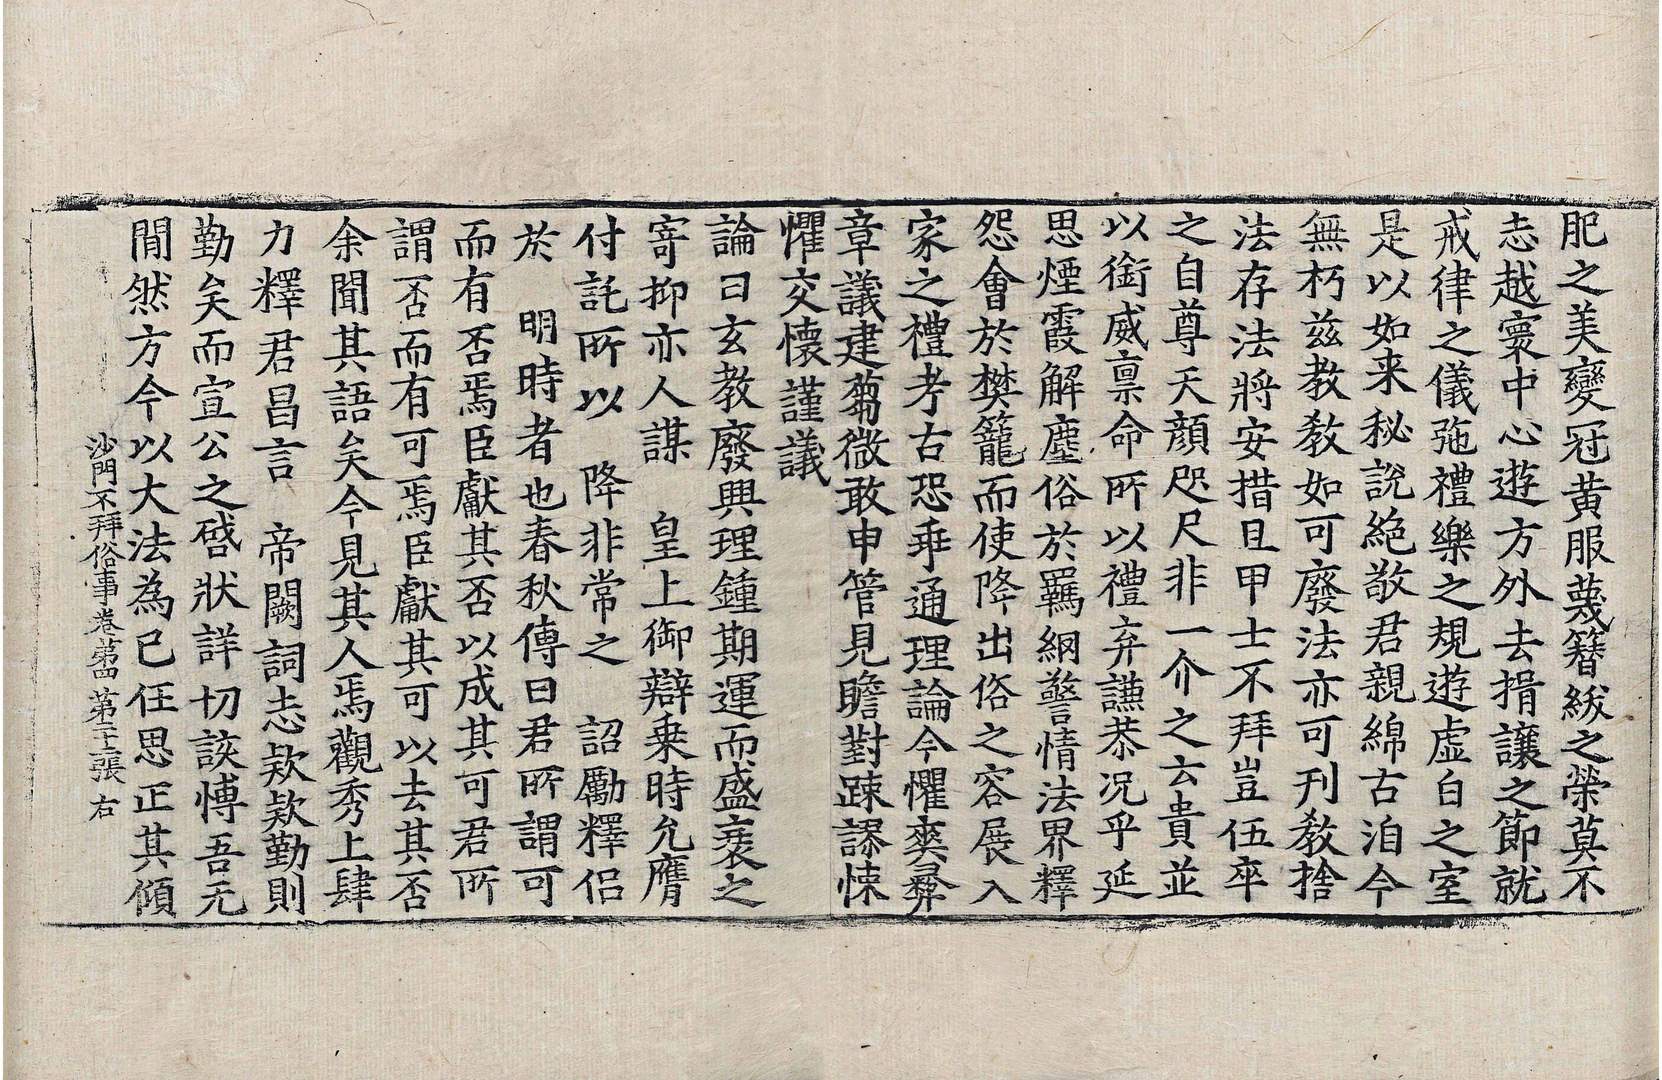 肥之美變冠黄服蔑簪紱之榮莫不
志越寰中心遊方外去揖讓之節就
戒律之儀弛禮樂之規遊虛白之室
是以如来秘說絶敬君親綿古洎今
無朽兹教教如可廢法亦可刊教捨
法存法將安措且甲士不拜豈伍卒
之自尊天顔咫尺非一介之云貴並
以銜威禀命所以禮弃謙恭况乎延
思煙霞解塵俗於羈網警情法界釋
怨會於樊籠而使降出俗之容展入
家之禮考古恐乖通理論今懼爽彛
章議建蒭微敢申管見瞻對踈謬悚
懼交懷謹議
論曰玄教廢興理鍾期運而盛衰之
寄抑亦人謀　皇上御辯乗時允膺
付託所以　降非常之　詔勵釋侣
於　明時者也春秋傳曰君所謂可
而有否焉臣獻其否以成其可君所
謂否而有可焉臣獻其可以去其否
余聞其語矣今見其人焉觀秀上肆
力釋君昌言　帝闕詞志欵欵勤則
勤矣而宣公之啓狀詳切該愽吾无
閒然方今以大法為已任思正其傾
沙門不拜俗事卷第四　第二十張　右